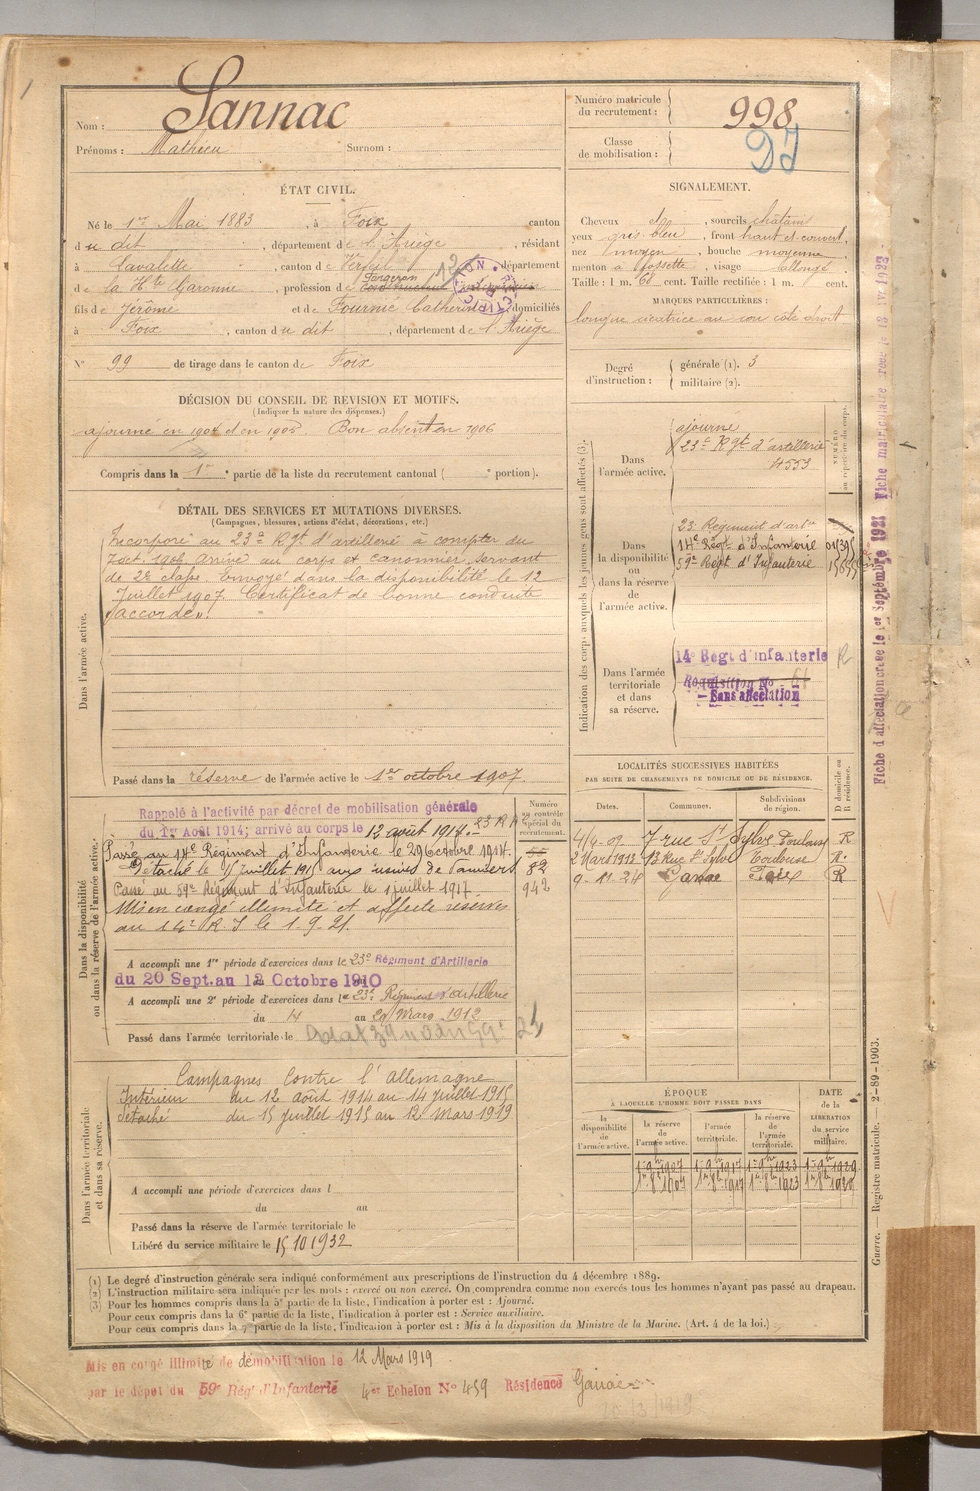 Nom : Sannac
Prénoms : Mathieu Surnom :
Numéro matricule du recrutement : 998
Classe de mobilisation :
ÉTAT CIVIL.
Né le 1er Mai 1883, à Foix canton
du dit, département de l'Ariège, résidant
à Lavalette, canton de Verfeil, département
de la Hte Garonne, profession de Forgeron
fils de Jérôme et de Fournié Catherine domiciliés
à Foix, canton du dit, département de l'Ariège
N° 99 de tirage dans le canton de Foix
SIGNALEMENT.
Cheveux dto, sourcils châtain
yeux gris bleu, front haut et couvert,
nez moyen, bouche moyenne
menton à fossette, visage allongé
Taille : 1 m. 68 cent. Taille rectifiée : 1 m. cent.
MARQUES PARTICULIÈRES :
longue cicatrice au cou côté droit
Degré d'instruction : générale (1). 3
militaire (2).
DÉCISION DU CONSEIL DE REVISION ET MOTIFS.
(Indiquer la nature des dispenses.)
ajourné en 1904 et en 1905. Bon absent en 1906
Compris dans la 1re partie de la liste du recrutement cantonal ( e portion).
DÉTAIL DES SERVICES ET MUTATIONS DIVERSES.
(Campagnes, blessures, actions d'éclat, décorations, etc.)
Dans l'armée active.
Incorporé au 23e Rgt d'artillerie à compter du
7 oct. 1906 Arrivé au corps et canonnier servant
de 2e classe. Envoyé dans la disponibilité le 12
Juillet 1907 Certificat de bonne conduite
"accordé".
Passé dans la réserve de l'armée active le 1er octobre 1907.
Indication des corps auxquels les jeunes gens sont affectés (3).
NUMÉRO au répertoire du corps.
Dans l'armée active.
ajourné
23e Rgt d'artillerie
4553
Dans la disponibilité ou dans la réserve de l'armée active.
23e Régiment d'artie
14e Régt d'Infanterie
59e Régt d'Infanterie
Dans l'armée territoriale et dans sa réserve.
14e Régt d'infanterie
Réquisition No 61
Sans affectation
LOCALITÉS SUCCESSIVES HABITÉES
PAR SUITE DE CHANGEMENTS DE DOMICILE OU DE RÉSIDENCE.
Dates. Communes. Subdivisions de région. D domicile ou R résidence.
7 rue St Sylve Toulouse R
2 Mars 1912 13 Rue St Sylve Toulouse R.
9-11-24 Ganac Foix R
Dans la disponibilité ou dans la réserve de l'armée active.
Numéro au contrôle spécial du recrutement.
Rappelé à l'activité par décret de mobilisation générale
du 1er Août 1914; arrivé au corps le 12 août 1914.-
Passé au 14e Régiment d'Infanterie le 29 Octobre 1914.
Détaché le 15 juillet 1915 aux usines de Pamiers 82
Passé au 59e Régiment d'Infanterie le 1 juillet 1917. 942
Mis en congé illimité et affecté réserves
au 14e R. I le 1.9.21.
A accompli une 1re période d'exercices dans le 23e Régiment d'Artillerie
du 20 Sept. au 12 Octobre 1910
A accompli une 2e période d'exercices dans le 23e Régiment d'Artillerie
du 14 au 29 Mars 1912
Passé dans l'armée territoriale le
Dans l'armée territoriale et dans sa réserve.
Campagnes Contre l'Allemagne
Intérieur du 12 août 1914 au 14 juillet 1915
Détaché du 15 juillet 1915 au 12 Mars 1919
A accompli une période d'exercices dans l
du au
Passé dans la réserve de l'armée territoriale le
Libéré du service militaire le 15 10 1932
ÉPOQUE
À LAQUELLE L'HOMME DOIT PASSER DANS
la disponibilité de l'armée active. la réserve de l'armée active. l'armée territoriale. la réserve de l'armée territoriale. DATE de la LIBÉRATION du service militaire.
(1) Le degré d'instruction générale sera indiqué conformément aux prescriptions de l'instruction du 4 décembre 1889.
(2) L'instruction militaire sera indiquée par les mots : exercé ou non exercé. On comprendra comme non exercés tous les hommes n'ayant pas passé au drapeau.
(3) Pour les hommes compris dans la 5e partie de la liste, l'indication à porter est : Ajourné.
Pour ceux compris dans la 6e partie de la liste, l'indication à porter est : Service auxiliaire.
Pour ceux compris dans la 7e partie de la liste, l'indication à porter est : Mis à la disposition du Ministre de la Marine. (Art. 4 de la loi.)
Mis en congé illimité de démobilisation le 12 Mars 1919
par le dépôt du 59e Régt d'Infanterie 4er Echelon No 459 Résidence Ganac
Guerre. — Registre matricule. — 2-89-1903.
Fiche d'affectation créée le 1er Septembre 1921 Fiche matriculaire